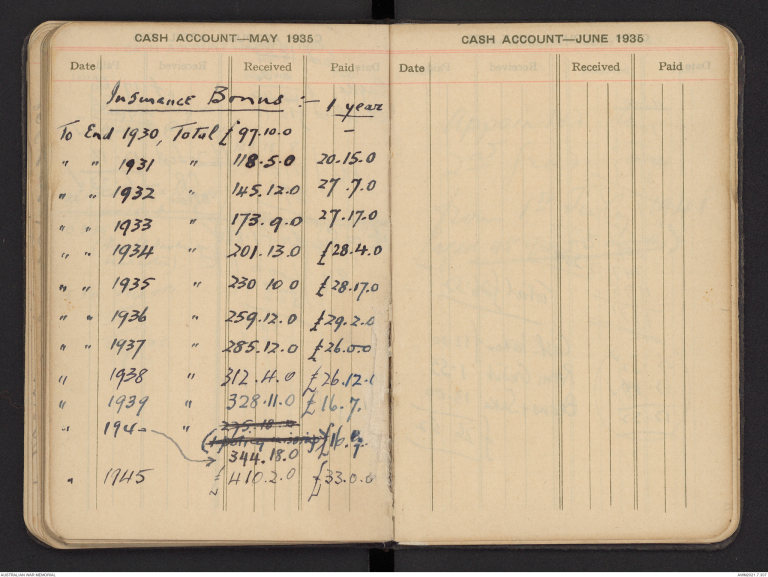 CASH ACCOUNT—MAY 1935
Date Received Paid
Insurance Bonus :— 1 year
To End 1930, Total £97.10.0 —
" " 1931 " 118.5.0 20.15.0
" " 1932 " 145.12.0 27.7.0
" " 1933 " 173.9.0 27.17.0
" " 1934 " 201.13.0 £28.4.0
" " 1935 " 230 10 0 £28.17.0
" " 1936 " 259.12.0 £29.2.0
" " 1937 " 285.12.0 £26.0.0
" 1938 " 312.4.0 £26.12.
" 1939 " 328.11.0 £16.7.
" 1940 "
(1 policy missing) £16.
344.18.0
" 1945 £410.2.0 £33.0.0
CASH ACCOUNT—JUNE 1935
Date Received Paid
AUSTRALIAN WAR MEMORIAL